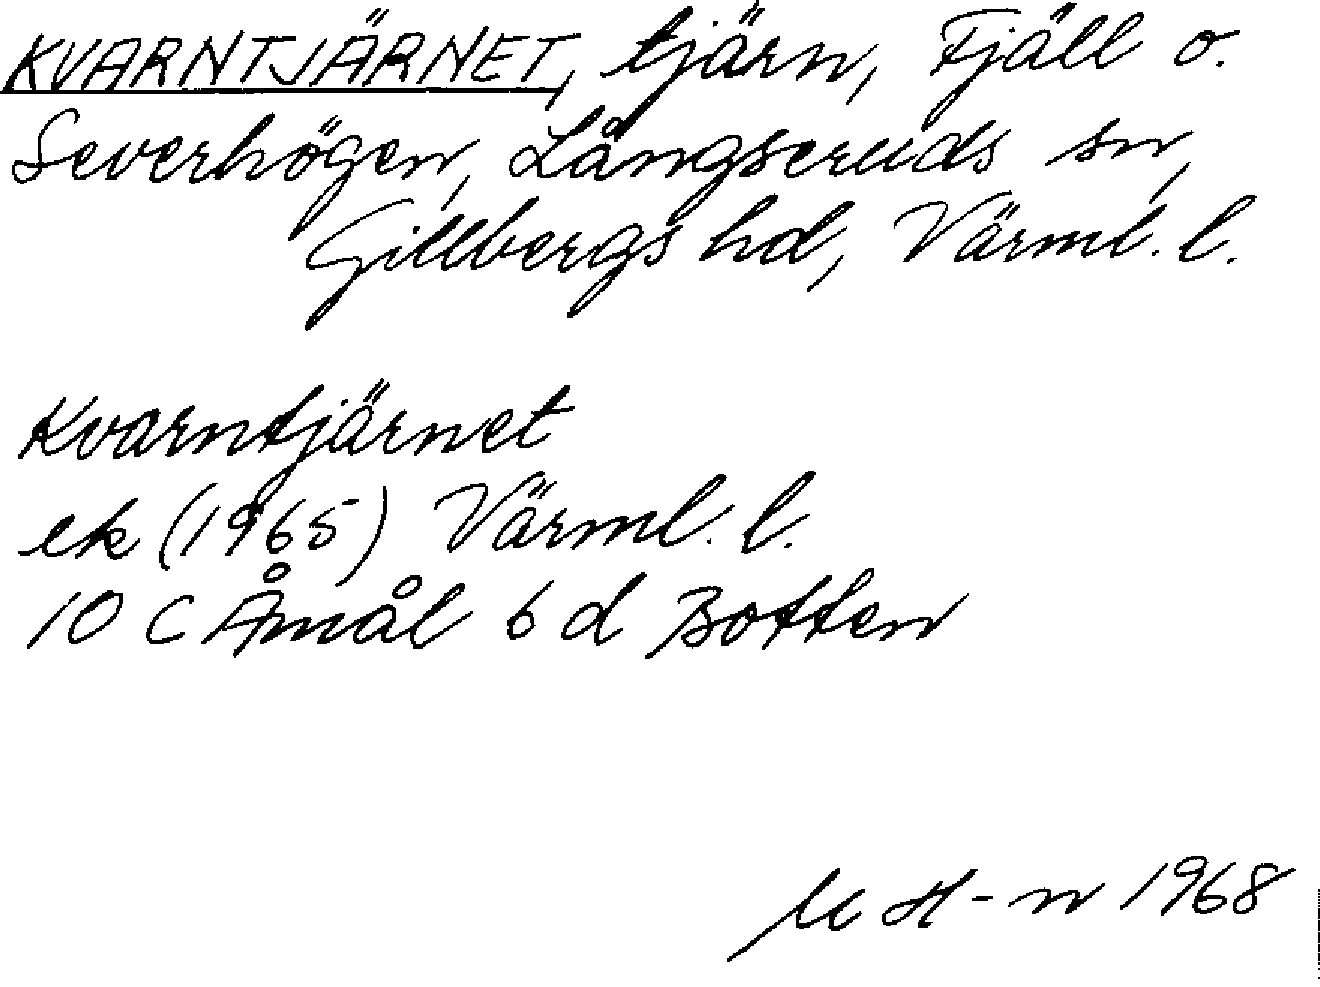 KVARNTJÄRNET, tjärn, Fjäll o.
Severhögen, Långseruds sn,
Gillbergs hd, Värml. l.
Kvarntjärnet
ek (1965) Värml. l.
10 C Åmål 6 d Botten
M H-n 1968